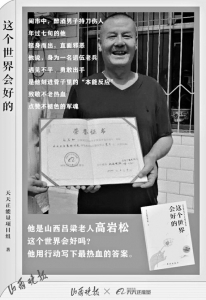 这个世界会好的
天天正能量项目组 著
闹市中，醉酒男子持刀伤人
年过七旬的他
挺身而出，直面邪恶
他说，身为一名退伍老兵
遇见不平，勇敢出手
是他刻进骨子里的“本能反应”
致敬不老热血
点赞不褪色的军魂
荣誉证书
这个世界会好的
他是山西吕梁老人高岩松
这个世界会好吗？
他用行动写下最热血的答案。
山西晚报
×
天天正能量